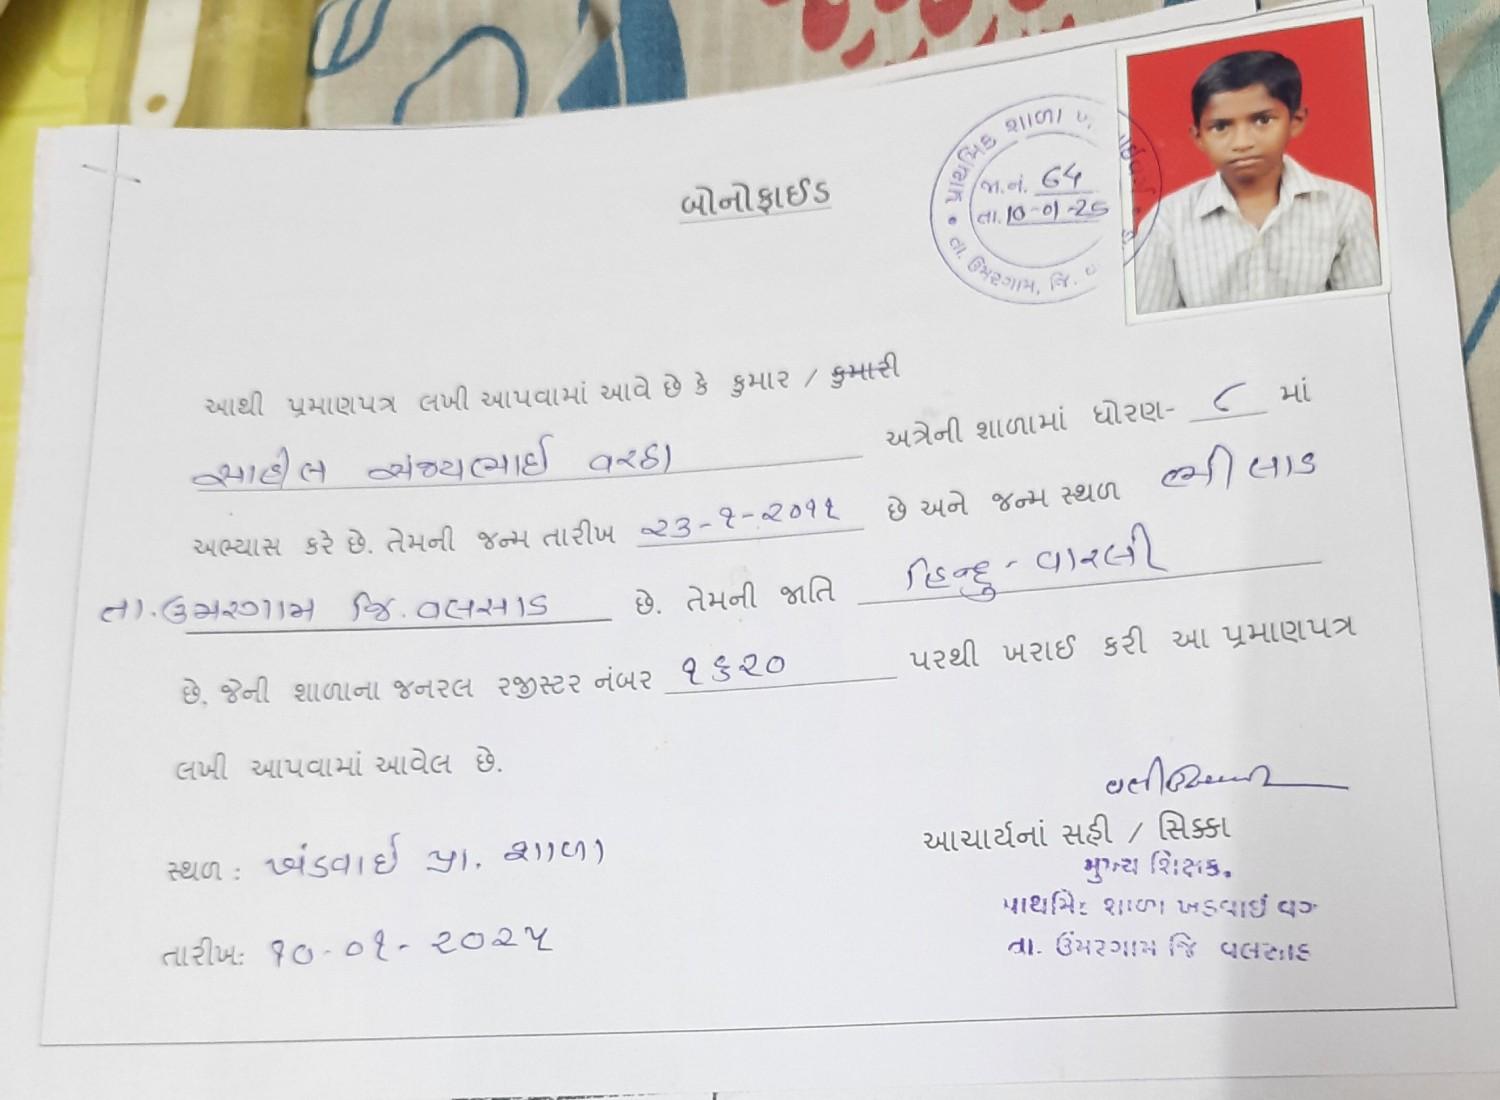 બોનોફાઈડ
પ્રાથમિક શાળા
જા.નં. 64
તા. 10-01-25
તા. ઉમરગામ, જિ.
આથી પ્રમાણપત્ર લખી આપવામાં આવે છે કે કુમાર / કુમારી
સાહીલ સંજયભાઈ વરઠા અત્રેની શાળામાં ધોરણ- ૮ માં
અભ્યાસ કરે છે. તેમની જન્મ તારીખ ૨૩-૧-૨૦૧૧ છે અને જન્મ સ્થળ ભીલાડ
તા. ઉમરગામ જિ. વલસાડ છે. તેમની જાતિ હિન્દુ - વારલી
છે. જેની શાળાના જનરલ રજીસ્ટર નંબર ૧૬૨૦ પરથી ખરાઈ કરી આ પ્રમાણપત્ર
લખી આપવામાં આવેલ છે.
સ્થળ : ખંડવાઈ પ્રા. શાળા
તારીખ: ૧૦-૦૧-૨૦૨૫
આચાર્યનાં સહી / સિક્કા
મુખ્ય શિક્ષક.
શાળા ખડવાઈ વગ
તા. ઉંમરગામ જિ વલસાડ